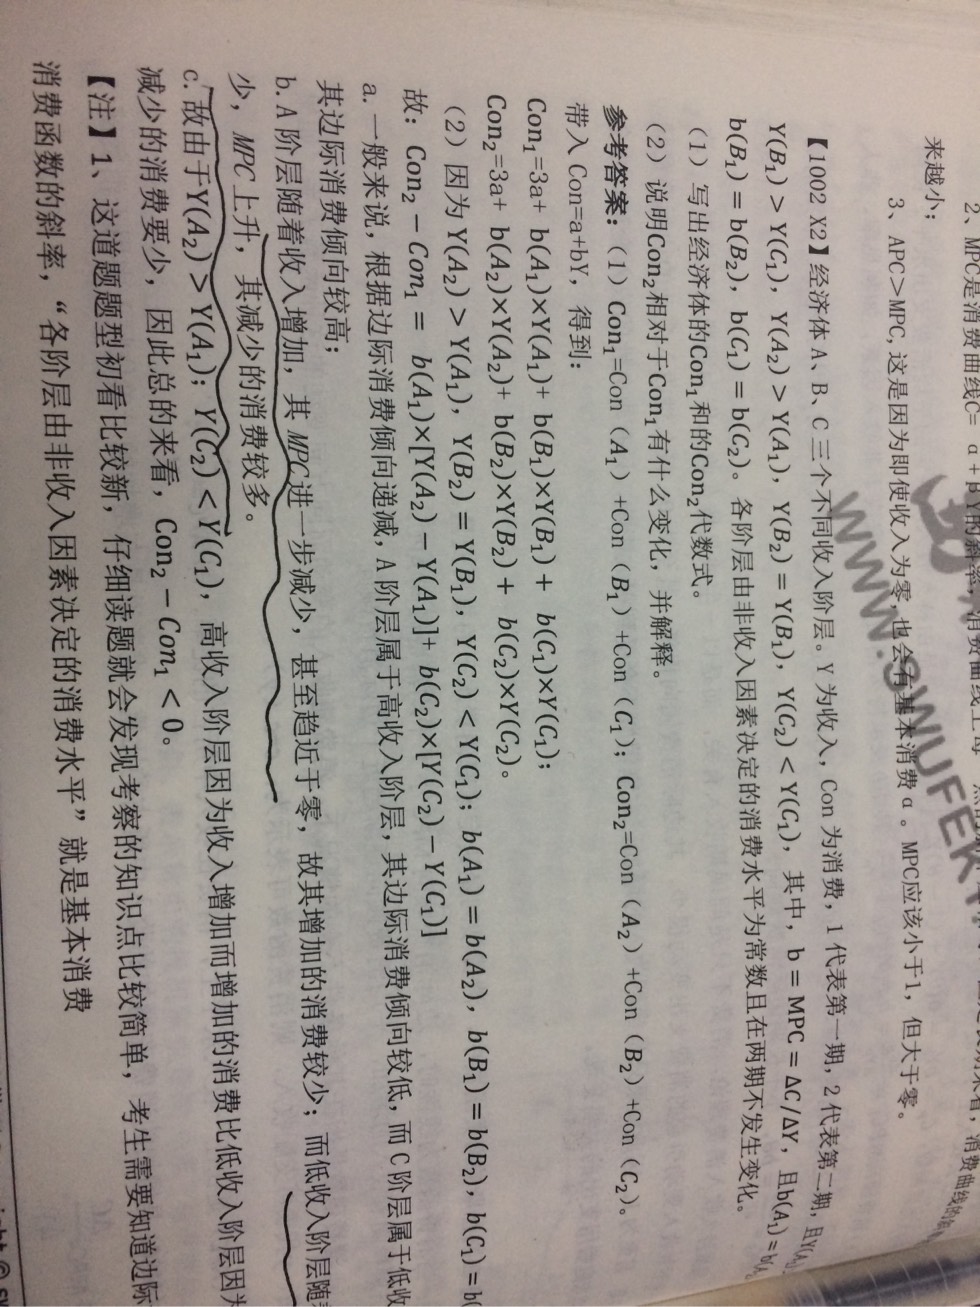 2、MPC是消费曲线C= α+βY的斜率,
来越小;
3、APC>MPC, 这是因为即使收入为零,也会有基本消费α。MPC应该小于1,但大于零。
【1002 X2】经济体 A、B、C 三个不同收入阶层。Y 为收入,Con 为消费,1 代表第一期,2 代表第二期,且Y(A₁)
Y(B₁) > Y(C₁),Y(A₂) > Y(A₁),Y(B₂) = Y(B₁),Y(C₂) < Y(C₁),其中,b = MPC = ΔC/ΔY,且b(A₁) = b(A₂
b(B₁) = b(B₂),b(C₁) = b(C₂)。各阶层由非收入因素决定的消费水平为常数且在两期不发生变化。
(1)写出经济体的Con₁和的Con₂代数式。
(2)说明Con₂相对于Con₁有什么变化,并解释。
参考答案:(1)Con₁=Con(A₁)+Con(B₁)+Con(C₁);Con₂=Con(A₂)+Con(B₂)+Con(C₂)。
带入 Con=a+bY,得到:
Con₁=3a+ b(A₁)×Y(A₁)+ b(B₁)×Y(B₁) + b(C₁)×Y(C₁);
Con₂=3a+ b(A₂)×Y(A₂)+ b(B₂)×Y(B₂) + b(C₂)×Y(C₂)。
(2)因为 Y(A₂) > Y(A₁),Y(B₂) = Y(B₁),Y(C₂) < Y(C₁);b(A₁) = b(A₂),b(B₁) = b(B₂),b(C₁) = b(
故:Con₂ − Con₁ = b(A₁)×[Y(A₂) − Y(A₁)]+ b(C₂)×[Y(C₂) − Y(C₁)]
a. 一般来说,根据边际消费倾向递减,A 阶层属于高收入阶层,其边际消费倾向较低,而 C 阶层属于低收
其边际消费倾向较高;
b. A 阶层随着收入增加,其 MPC进一步减少,甚至趋近于零,故其增加的消费较少;而低收入阶层随
少,MPC上升,其减少的消费较多。
c. 故由于Y(A₂) > Y(A₁);Y(C₂) < Y(C₁),高收入阶层因为收入增加而增加的消费比低收入阶层因为
减少的消费要少,因此总的来看,Con₂ − Con₁ < 0。
【注】1、这道题题型初看比较新,仔细读题就会发现考察的知识点比较简单,考生需要知道边际
消费函数的斜率,“各阶层由非收入因素决定的消费水平”就是基本消费